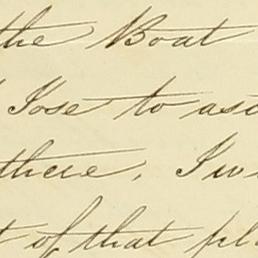 the Boat
Jose to asc
there, I w
t of that pla